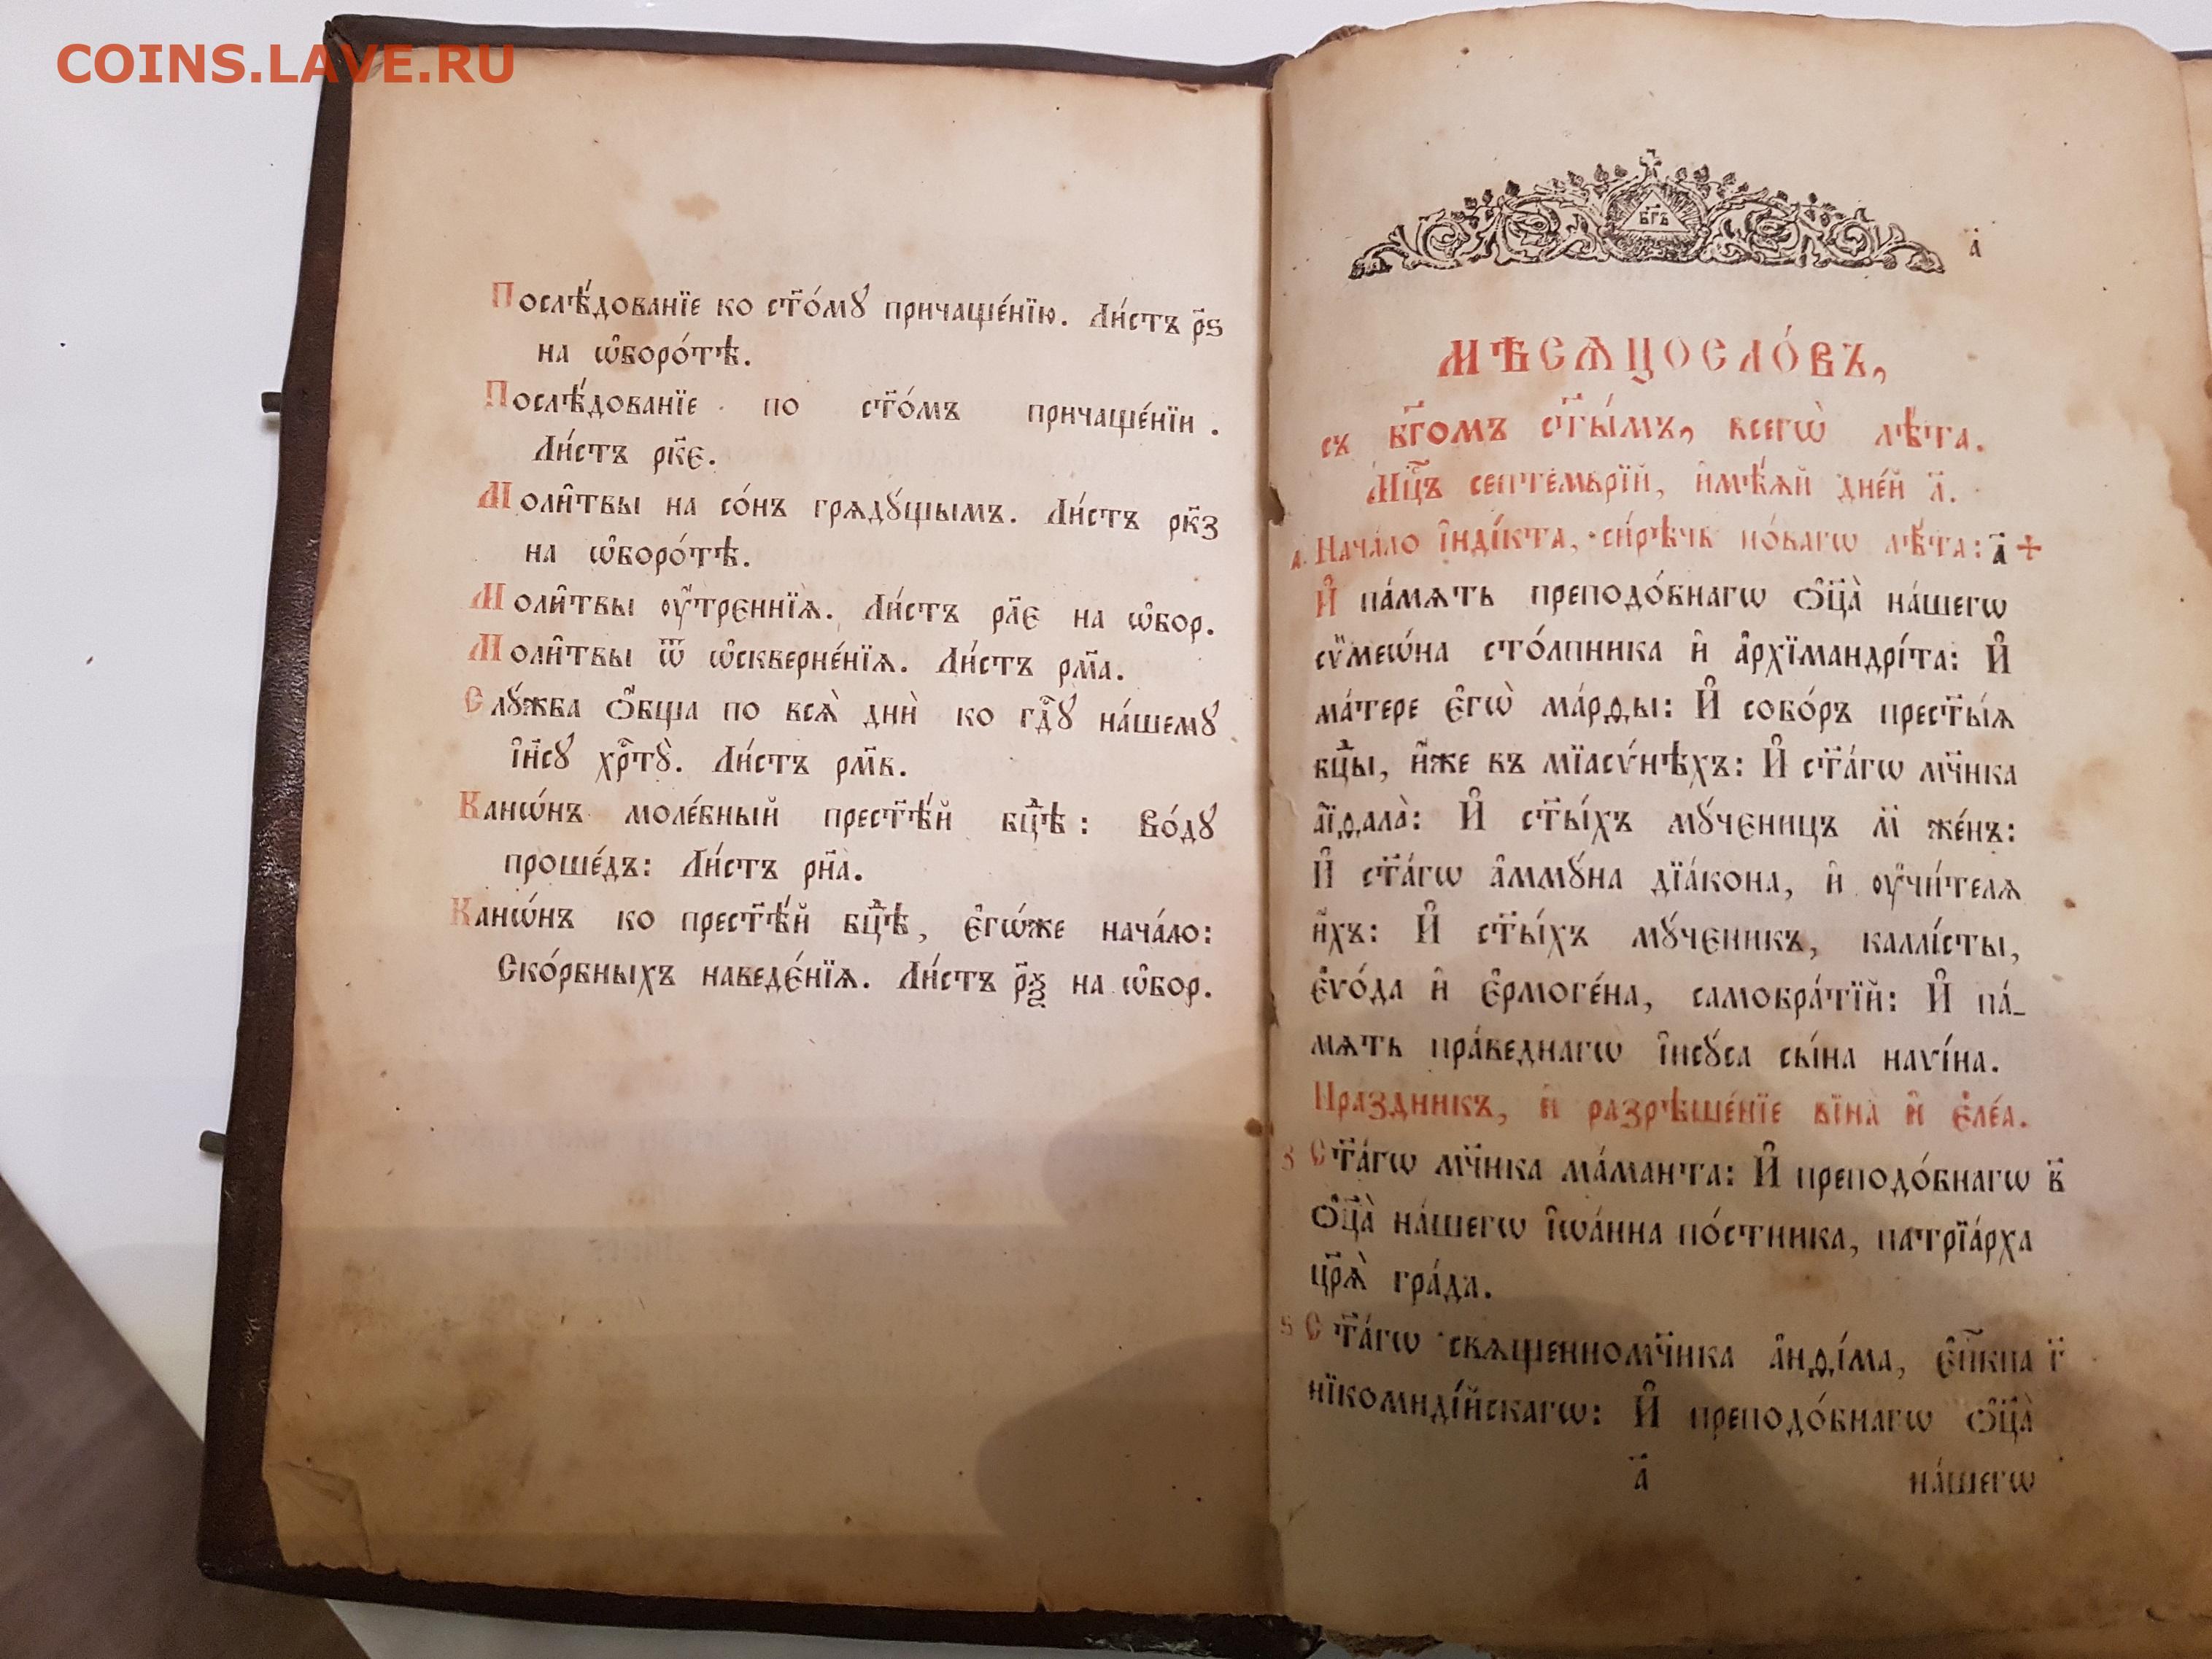 COINS.LAVE.RU
Послѣ́дованїе ко ст҃о́мꙋ причаще́нїю. Ли́стъ р҃ѕ
на ѡ҆боро́тѣ.
Послѣ́дованїе по ст҃о́мъ причаще́нїи.
Ли́стъ рк҃є.
Моли҄твы на со́нъ грядꙋ́щымъ. Ли́стъ рк҃з
на ѡ҆боро́тѣ.
Моли҄твы ᲂу҆́треннїѧ. Ли́стъ рл҃є на ѡ҆бор.
Моли҄твы ѿ ѡ҆скверне́нїѧ. Ли́стъ рм҃а.
Слꙋ́жба ѻ҆́бща по всѧ̀ дни̑ ко гдⷭ҇ꙋ на́шемꙋ
і҆и҃сꙋ хрⷭ҇тꙋ̀. Ли́стъ рм҃в.
Канѡ́нъ моле́бный прест҃ѣ́й бцⷣѣ: Во́дꙋ
проше́дъ: Ли́стъ рн҃а.
Канѡ́нъ ко прест҃ѣ́й бцⷣѣ, є҆гѡ́же нача́ло:
Ско́рбныхъ наведе́нїѧ. Ли́стъ р҃ѯ на ѡ҆бор.
бг҃ъ
а҃
МѢСѦЦОСЛО́ВЪ,
съ бг҃омъ ст҃ы́мъ, всегѡ̀ лѣ́та.
Мцⷭ҇ъ септе́мврїй, и҆мѣ́ѧй дне́й л҃.
а. Нача́ло і҆ндї́кта, си́рѣчь но́вагѡ лѣ́та: а҃ +
И҆ па́мѧть преподо́бнагѡ ѻ҆ц҃а̀ на́шегѡ
сѷмеѡ́на сто́лпника и҆ а҆рхїмандрі́та: И҆
ма́тере є҆гѡ̀ ма́рѳы: И҆ собо́ръ прест҃ы́ѧ
бцⷣы, и҆́же въ мїасѵ́нѣхъ: И҆ ст҃а́гѡ мч҃нка
а҆їѳала̀: И҆ ст҃ы́хъ мꙋ́чєницъ м҃ же́нъ:
И҆ ст҃а́гѡ а҆ммꙋ́на дїа́кона, и҆ ᲂу҆чи́телѧ
и҆́хъ: И҆ ст҃ы́хъ мꙋ́чєникъ, каллі́сты,
є҆ѵо́да и҆ є҆рмоге́на, самобра́тїй: И҆ па́-
мѧть пра́веднагѡ і҆исꙋ́са сы́на наѵи́на.
Праздникъ, и҆ разрѣше́нїе вїна̀ и҆ є҆ле́а.
з Ст҃а́гѡ мч҃нка ма́манта: И҆ преподо́бнагѡ в҃
ѻ҆ц҃а̀ на́шегѡ і҆ѡа́нна по́стника, патрїа́рха
цр҃ѧ̀ гра́да.
ѕ Ст҃а́гѡ свѧщенномч҃нка а҆нѳі́ма, є҆п҃кпа г҃
нїкомиді́йскагѡ: И҆ преподо́бнагѡ ѻ҆ц҃а̀
а҃ на́шегѡ